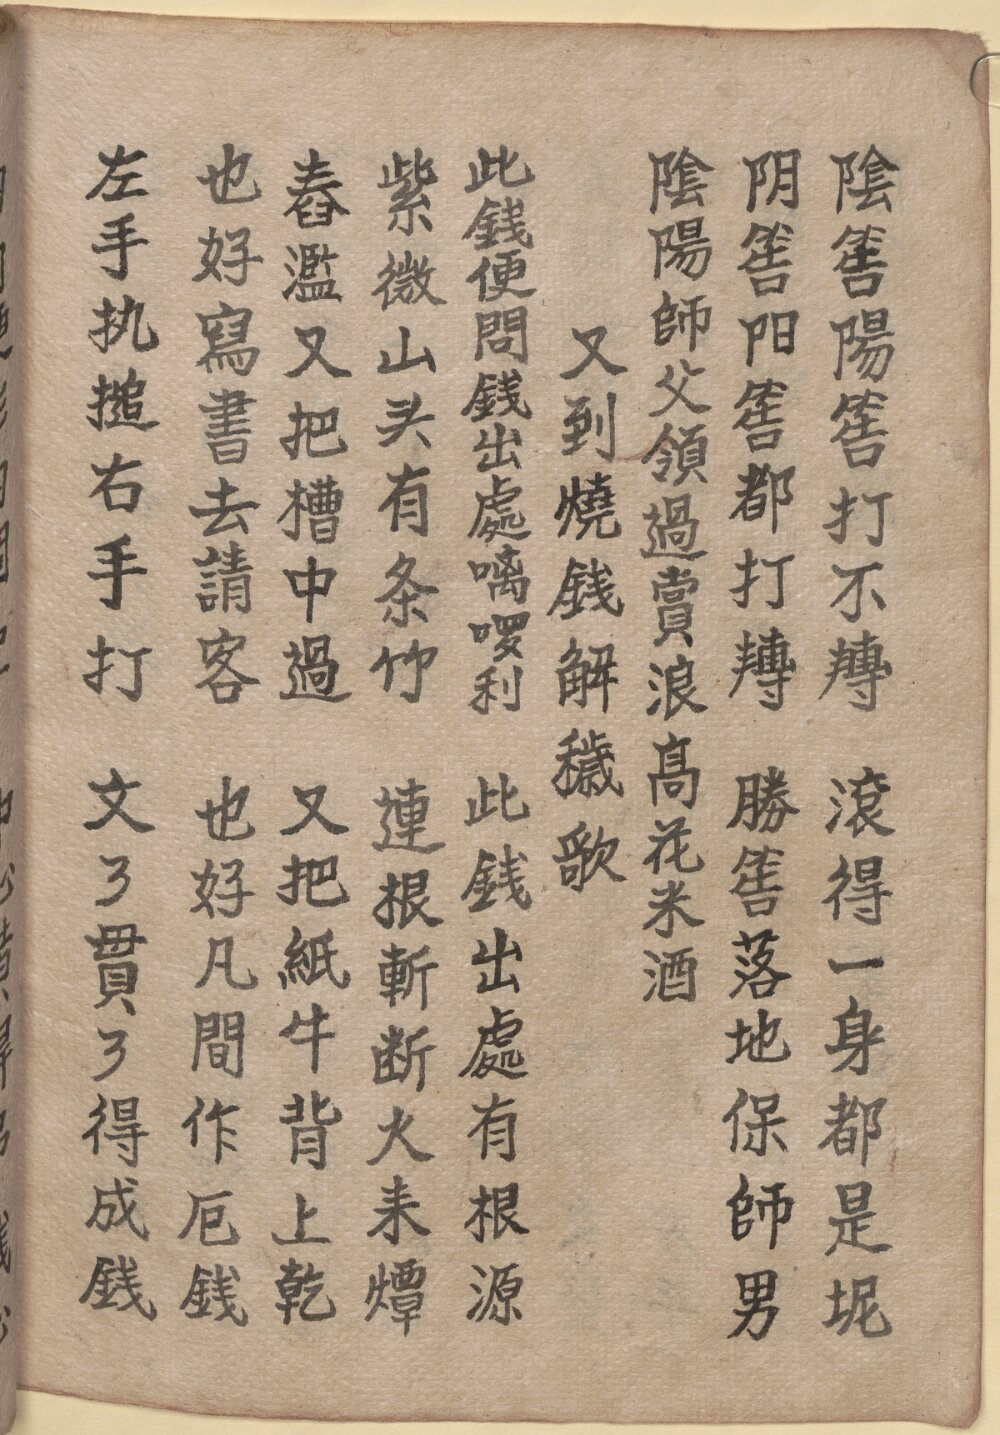 陰筶陽筶打不轉 滾得一身都是坭
阴筶阳筶都打轉 勝筶落地保師男
陰陽師父領過賞浪高花米酒
又到燒錢解穢歌
此錢便問錢出處嗬啰利 此錢出處有根源
紫微山头有条竹 連根斬断火来燂
舂濫又把槽中過 又把紙牛背上乾
也好寫書去請客 也好凡間作厄錢
左手执搥右手打 文了貫了得成錢